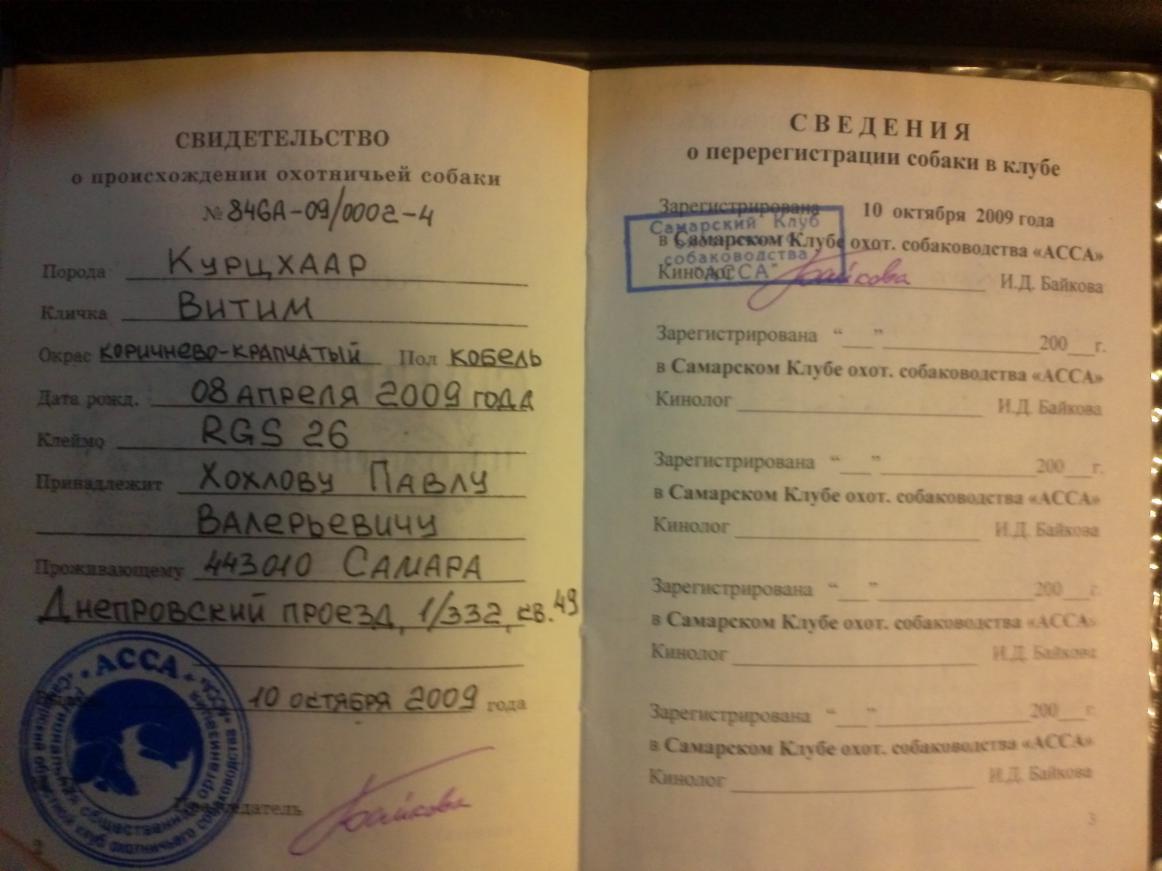 СВИДЕТЕЛЬСТВО
о происхождении охотничьей собаки
№ 846А-09/0002-4
Порода Курцхаар
Кличка Витим
Окрас коричнево-крапчатый Пол кобель
Дата рожд. 08 апреля 2009 года
Клеймо RGS 26
Принадлежит Хохлову Павлу
Валерьевичу
Проживающему 443010 Самара
Днепровский проезд, 1/332, кв. 49
10 октября 2009 года
Председатель Байкова
АССА
общественная организация
клуб охотничьего собаководства
2
СВЕДЕНИЯ
о перерегистрации собаки в клубе
Зарегистрирована 10 октября 2009 года
в Самарском Клубе охот. собаководства «АССА»
Кинолог Байкова И.Д. Байкова
Самарский Клуб
собаководства
"АССА"
Зарегистрирована “__” ____ 200__г.
в Самарском Клубе охот. собаководства «АССА»
Кинолог ____ И.Д. Байкова
Зарегистрирована “__” ____ 200__г.
в Самарском Клубе охот. собаководства «АССА»
Кинолог ____ И.Д. Байкова
Зарегистрирована “__” ____ 200__г.
в Самарском Клубе охот. собаководства «АССА»
Кинолог ____ И.Д. Байкова
Зарегистрирована “__” ____ 200__г.
в Самарском Клубе охот. собаководства «АССА»
Кинолог ____ И.Д. Байкова
3